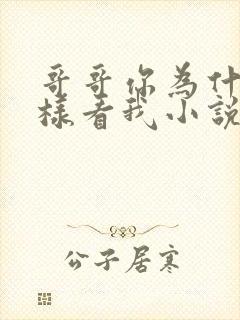 哥哥你為什
樣看我小說
公子居寒